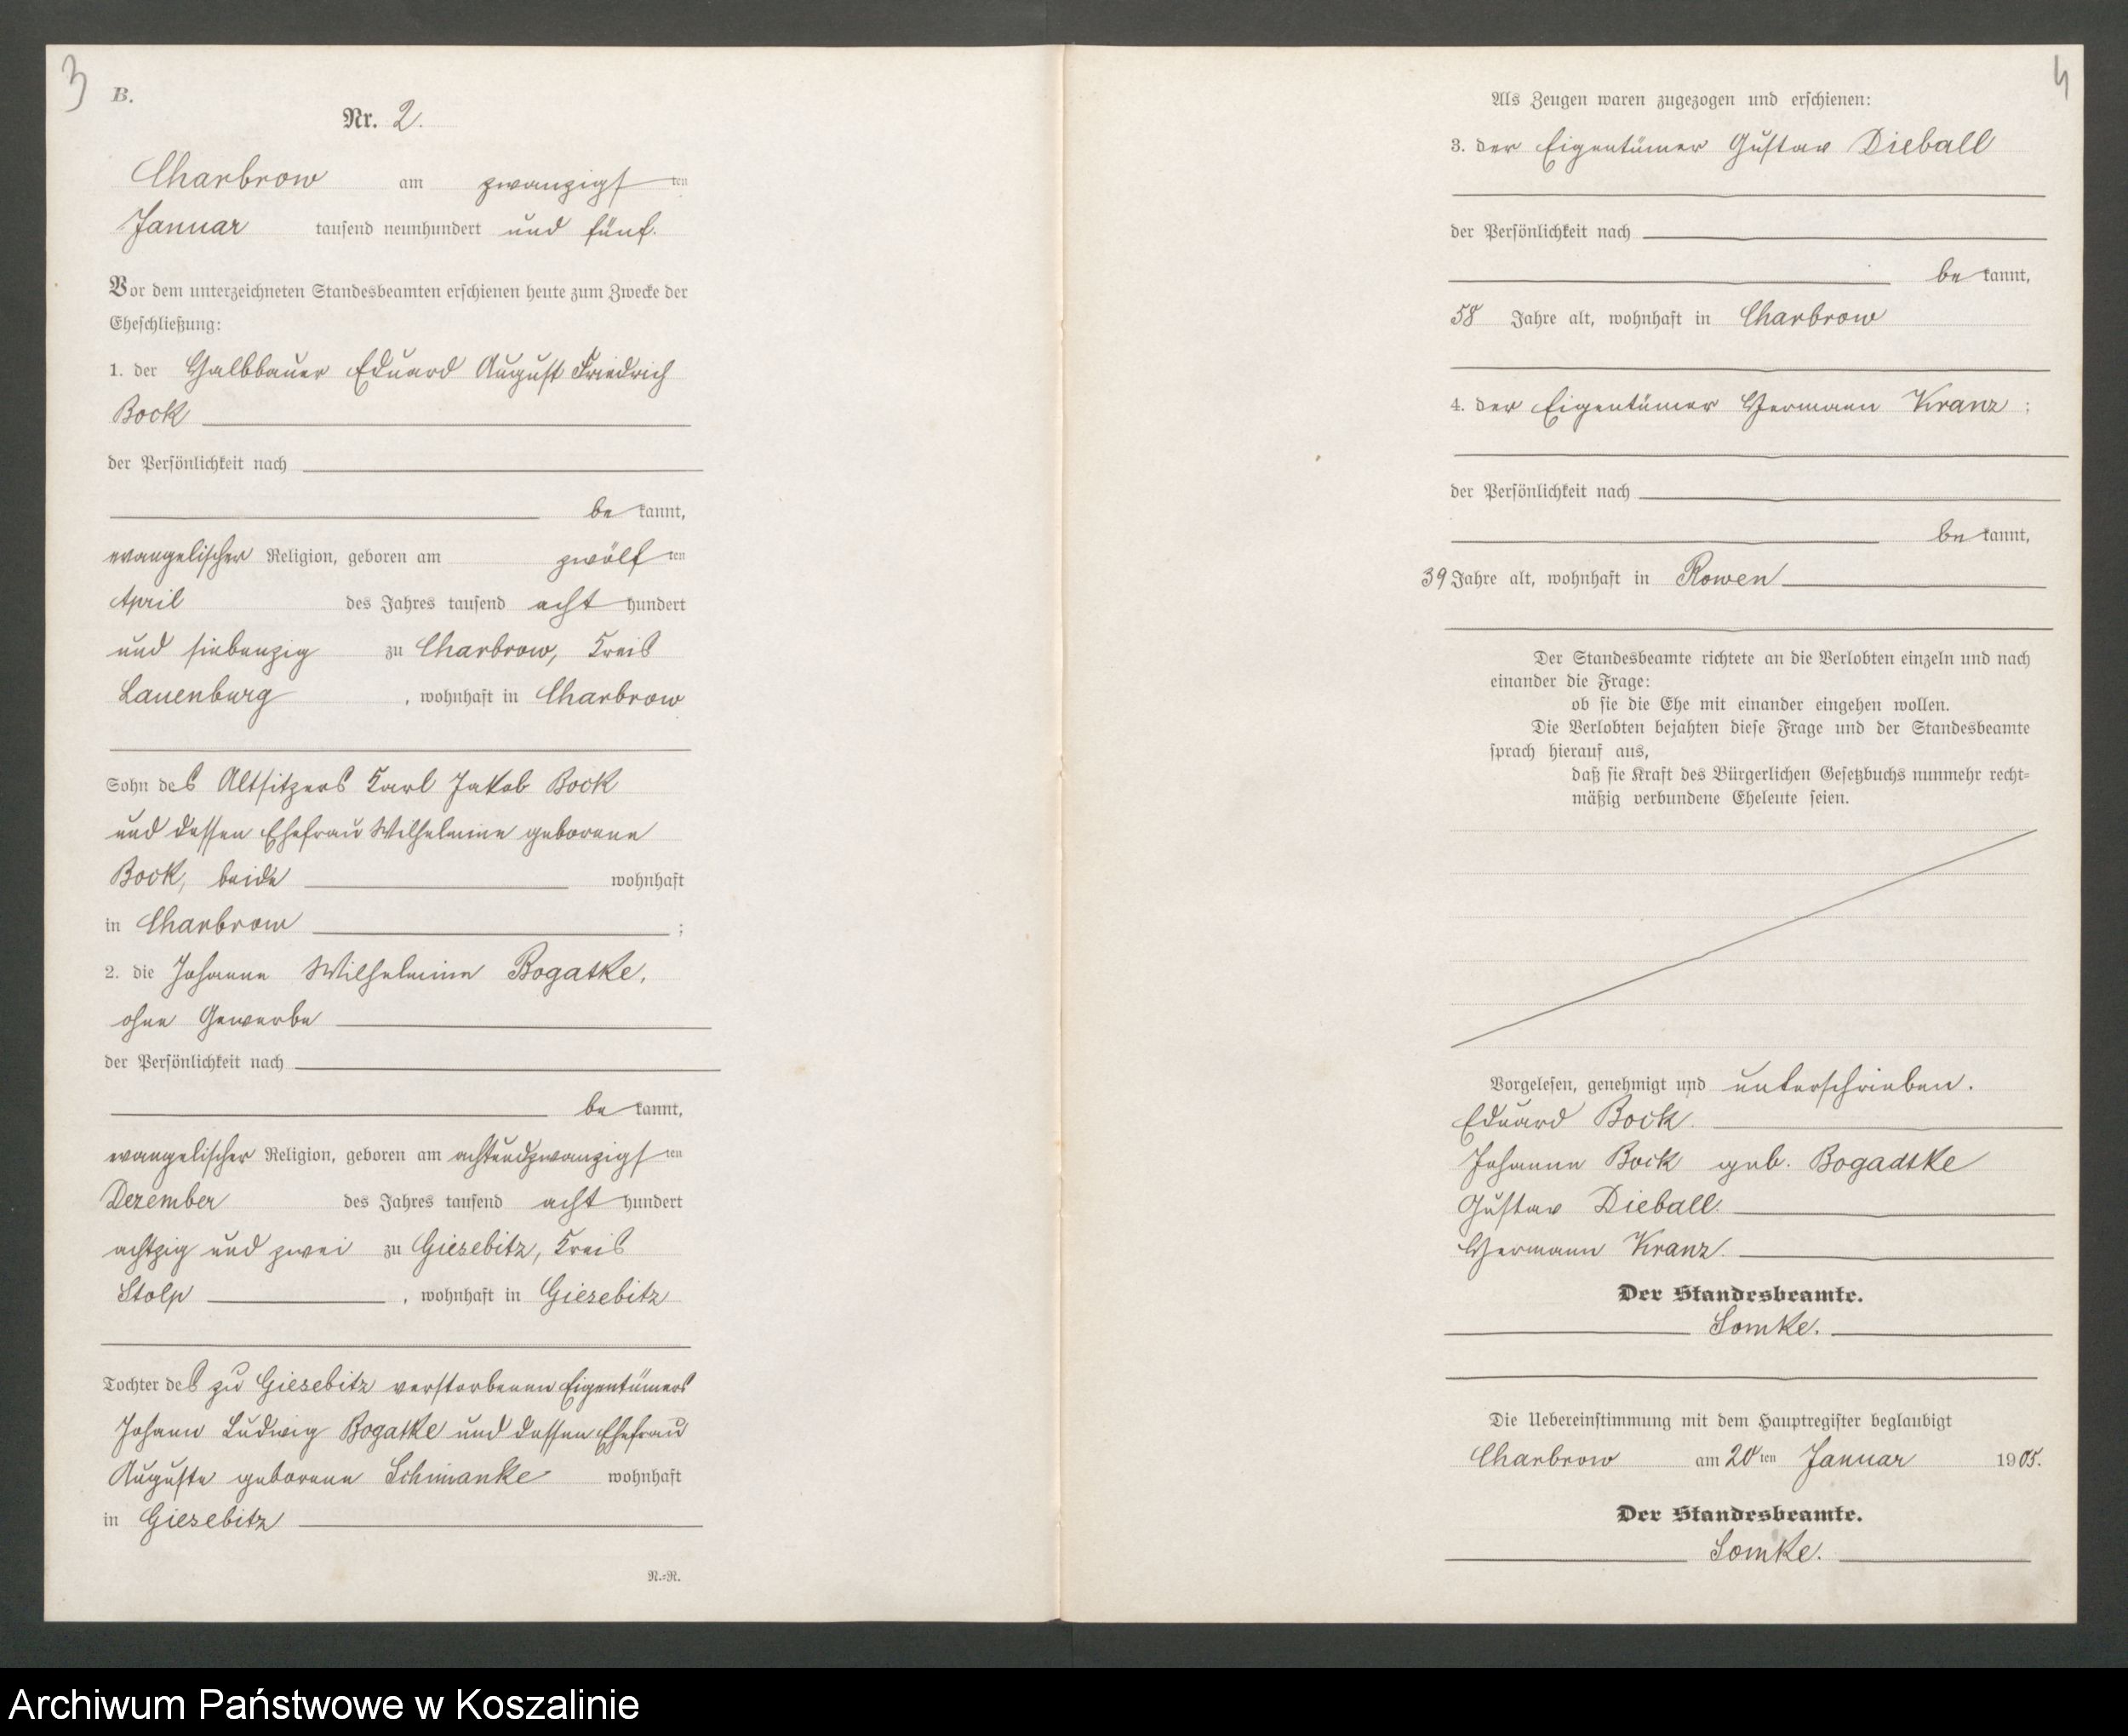 3
B.
Nr. 2.
Charbrow am zwanzigsten
Januar tausend neunhundert und fünf.
Vor dem unterzeichneten Standesbeamten erschienen heute zum Zwecke der
Eheschließung:
1. der Halbbauer Eduard August Friedrich
Bock
der Persönlichkeit nach
be kannt,
evangelischer Religion, geboren am zwölf ten
April des Jahres tausend acht hundert
und siebenzig zu Charbrow, Kreis
Lauenburg, wohnhaft in Charbrow
Sohn des Altsitzers Karl Jakob Bock
und dessen Ehefrau Wilhelmine geborene
Bock, beide wohnhaft
in Charbrow ;
2. die Johanne Wilhelmine Bogatke,
ohne Gewerbe
der Persönlichkeit nach
be kannt,
evangelischer Religion, geboren am achtundzwanzigsten
Dezember des Jahres tausend acht hundert
achtzig und zwei zu Giesebitz, Kreis
Stolp, wohnhaft in Giesebitz
Tochter des zu Giesebitz verstorbenen Eigentümers
Johann Ludwig Bogatke und dessen Ehefrau
Auguste geborene Schimanke wohnhaft
in Giesebitz
N.=N.
4
Als Zeugen waren zugezogen und erschienen:
3. der Eigentümer Gustav Dieball
der Persönlichkeit nach
be kannt,
58 Jahre alt, wohnhaft in Charbrow
4. der Eigentümer Hermann Kranz ;
der Persönlichkeit nach
be kannt,
39 Jahre alt, wohnhaft in Rowen
Der Standesbeamte richtete an die Verlobten einzeln und nach
einander die Frage:
ob sie die Ehe mit einander eingehen wollen.
Die Verlobten bejahten diese Frage und der Standesbeamte
sprach hierauf aus,
daß sie Kraft des Bürgerlichen Gesetzbuchs nunmehr recht=
mäßig verbundene Eheleute seien.
Vorgelesen, genehmigt und unterschrieben.
Eduard Bock.
Johanne Bock geb. Bogadtke
Gustav Dieball.
Hermann Kranz.
Der Standesbeamte.
Lomke.
Die Uebereinstimmung mit dem Hauptregister beglaubigt
Charbrow am 20ten Januar 1905.
Der Standesbeamte.
Lomke.
Archiwum Państwowe w Koszalinie